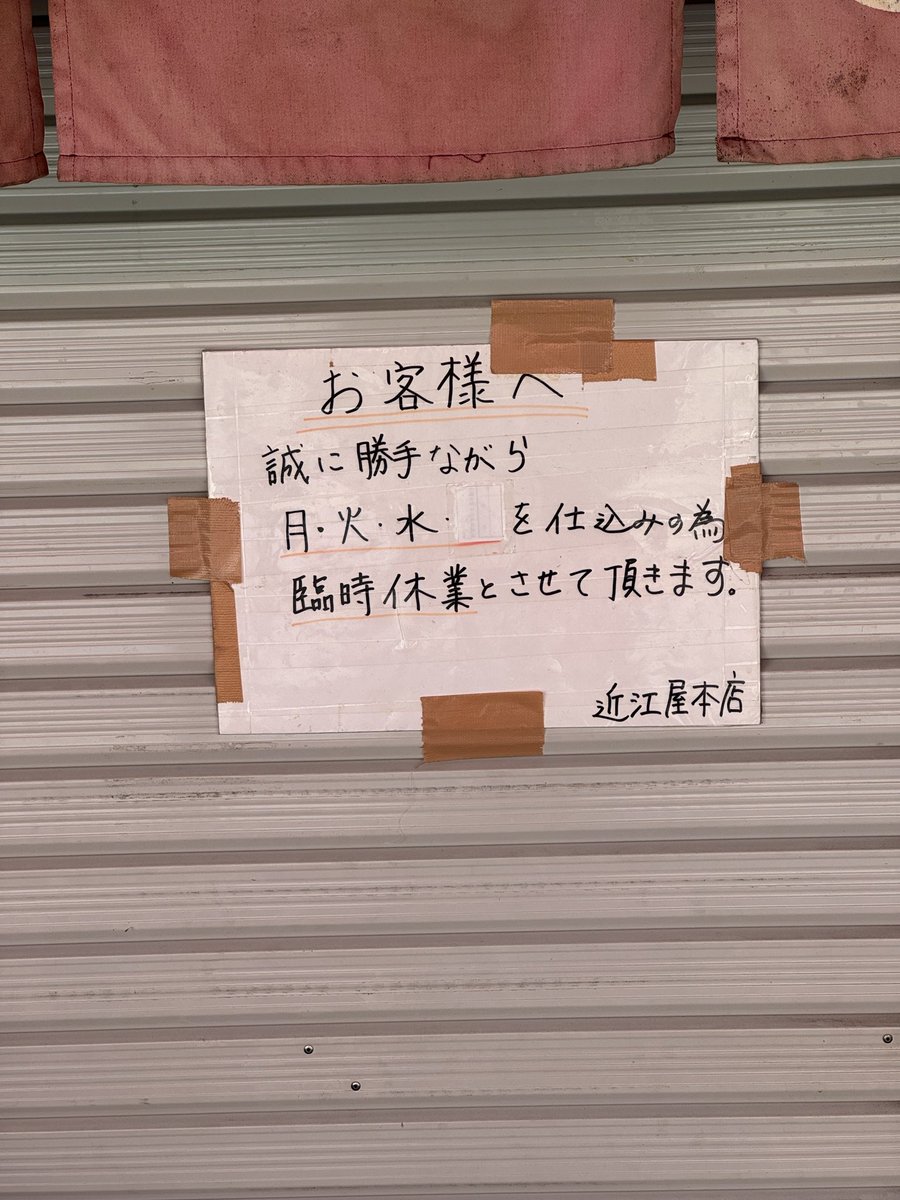 お客様へ
誠に勝手ながら
月・火・水・ を仕込みの為
臨時休業とさせて頂きます。
近江屋本店